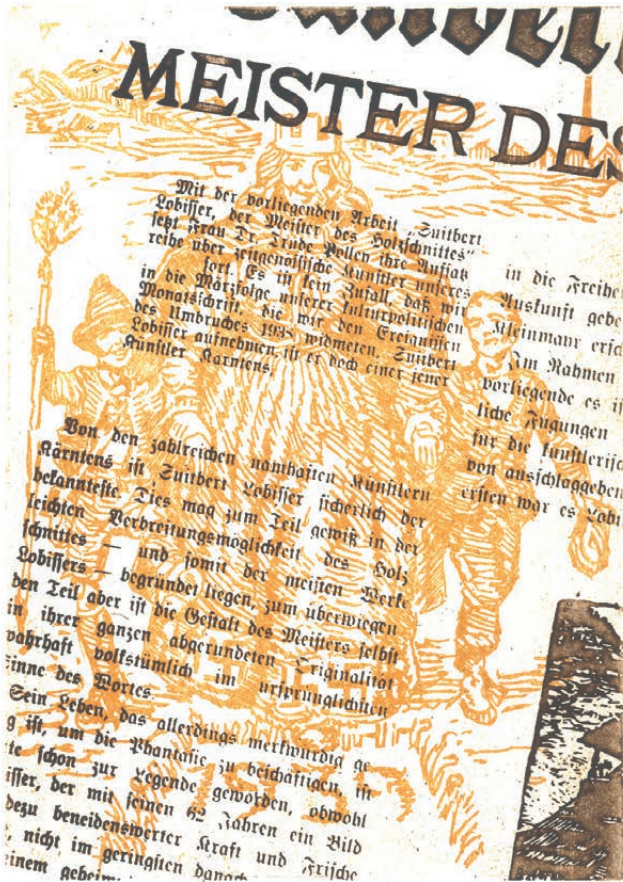 MEISTER DES
Mit der vorliegenden Arbeit „Suitbert
Lobisser, der Meister des Holzschnittes“
setzt Frau Dr. Trude Pollen ihre Aufsatz
reihe über zeitgenössische Künstler unseres
fort. Es ist kein Zufall, daß wir
in die Märzfolge unserer kulturpolitischen
Monatsschrift, die wir den Ereignissen
des Umbruches 1938 widmeten, Suitbert
Lobisser aufnehmen, ist er doch einer jener
Künstler Kärntens,
Von den zahlreichen namhaften Künstlern
Kärntens ist Suitbert Lobisser sicherlich der
bekannteste. Dies mag zum Teil gewiß in der
leichten Verbreitungsmöglichkeit des Holz
schnittes — und somit der meisten Werke
Lobissers — begründet liegen, zum überwiegen
den Teil aber ist die Gestalt des Meisters selbst
in ihrer ganzen abgerundeten Originalität
wahrhaft volkstümlich im ursprünglichsten
Sinne des Wortes.
Sein Leben, das allerdings merkwürdig ge
g ist, um die Phantasie zu beschäftigen, ist
te schon zur Legende geworden, obwohl
isser, der mit seinen 62 Jahren ein Bild
dezu beneidenswerter Kraft und Frische
nicht im geringsten danach
einem geheim
in die Freihe
Auskunft gebe
Kleinmayr ersch
Im Rahmen
vorliegende es is
liche Fügungen
für die künstlerisc
von ausschlaggeben
ersten war es Lobi
1933